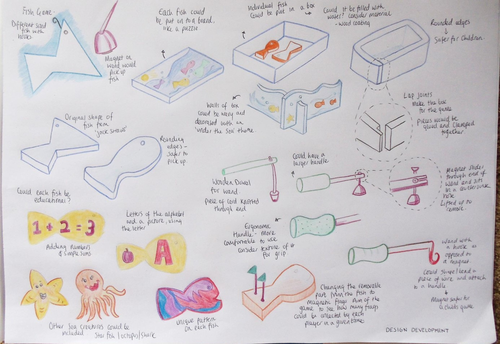 Fish Game
Different sized
fish with
holes
Magnet on
wand would
pick up
fish
Each fish could
be put into a board
like a puzzle
Individual fish
could be put in a box
Could it be filled with
water? Consider material
wood coating
Rounded edges
Safer for children.
Walls of box
could be wavy and
decorated with an
'under the sea' theme.
Lap joints
make the box
for the game
Pieces would be
glued and clamped
together.
Original shape of
fish from
Rounding
edges -
safer to
pick up.
Wooden Dowel
for wand
piece of cord knotted
through end
Could have a
larger handle
Magnet slides
through end of
wand and sits
in a
hole
Lifted up to
remove.
Could each fish be
educational?
1 + 2 = 3
Adding numbers
simple sums
Letters of the alphabet
and a picture using
the letter
A
Ergonomic
Handle - more
comfortable to use
Consider texture
for grip
Wand with
a hook as
opposed to
a magnet
Could shape/bend a
piece of wire and attach
to a handle
Magnet safer for
a child's game
Other sea creatures could be
included Starfish/octopus/shark
Unique pattern
on each fish
Changing the removable
part from the fish to
magnetic flags. Aim of the
game to see how many flags
could be collected by each
player in a given time.
DESIGN DEVELOPMENT